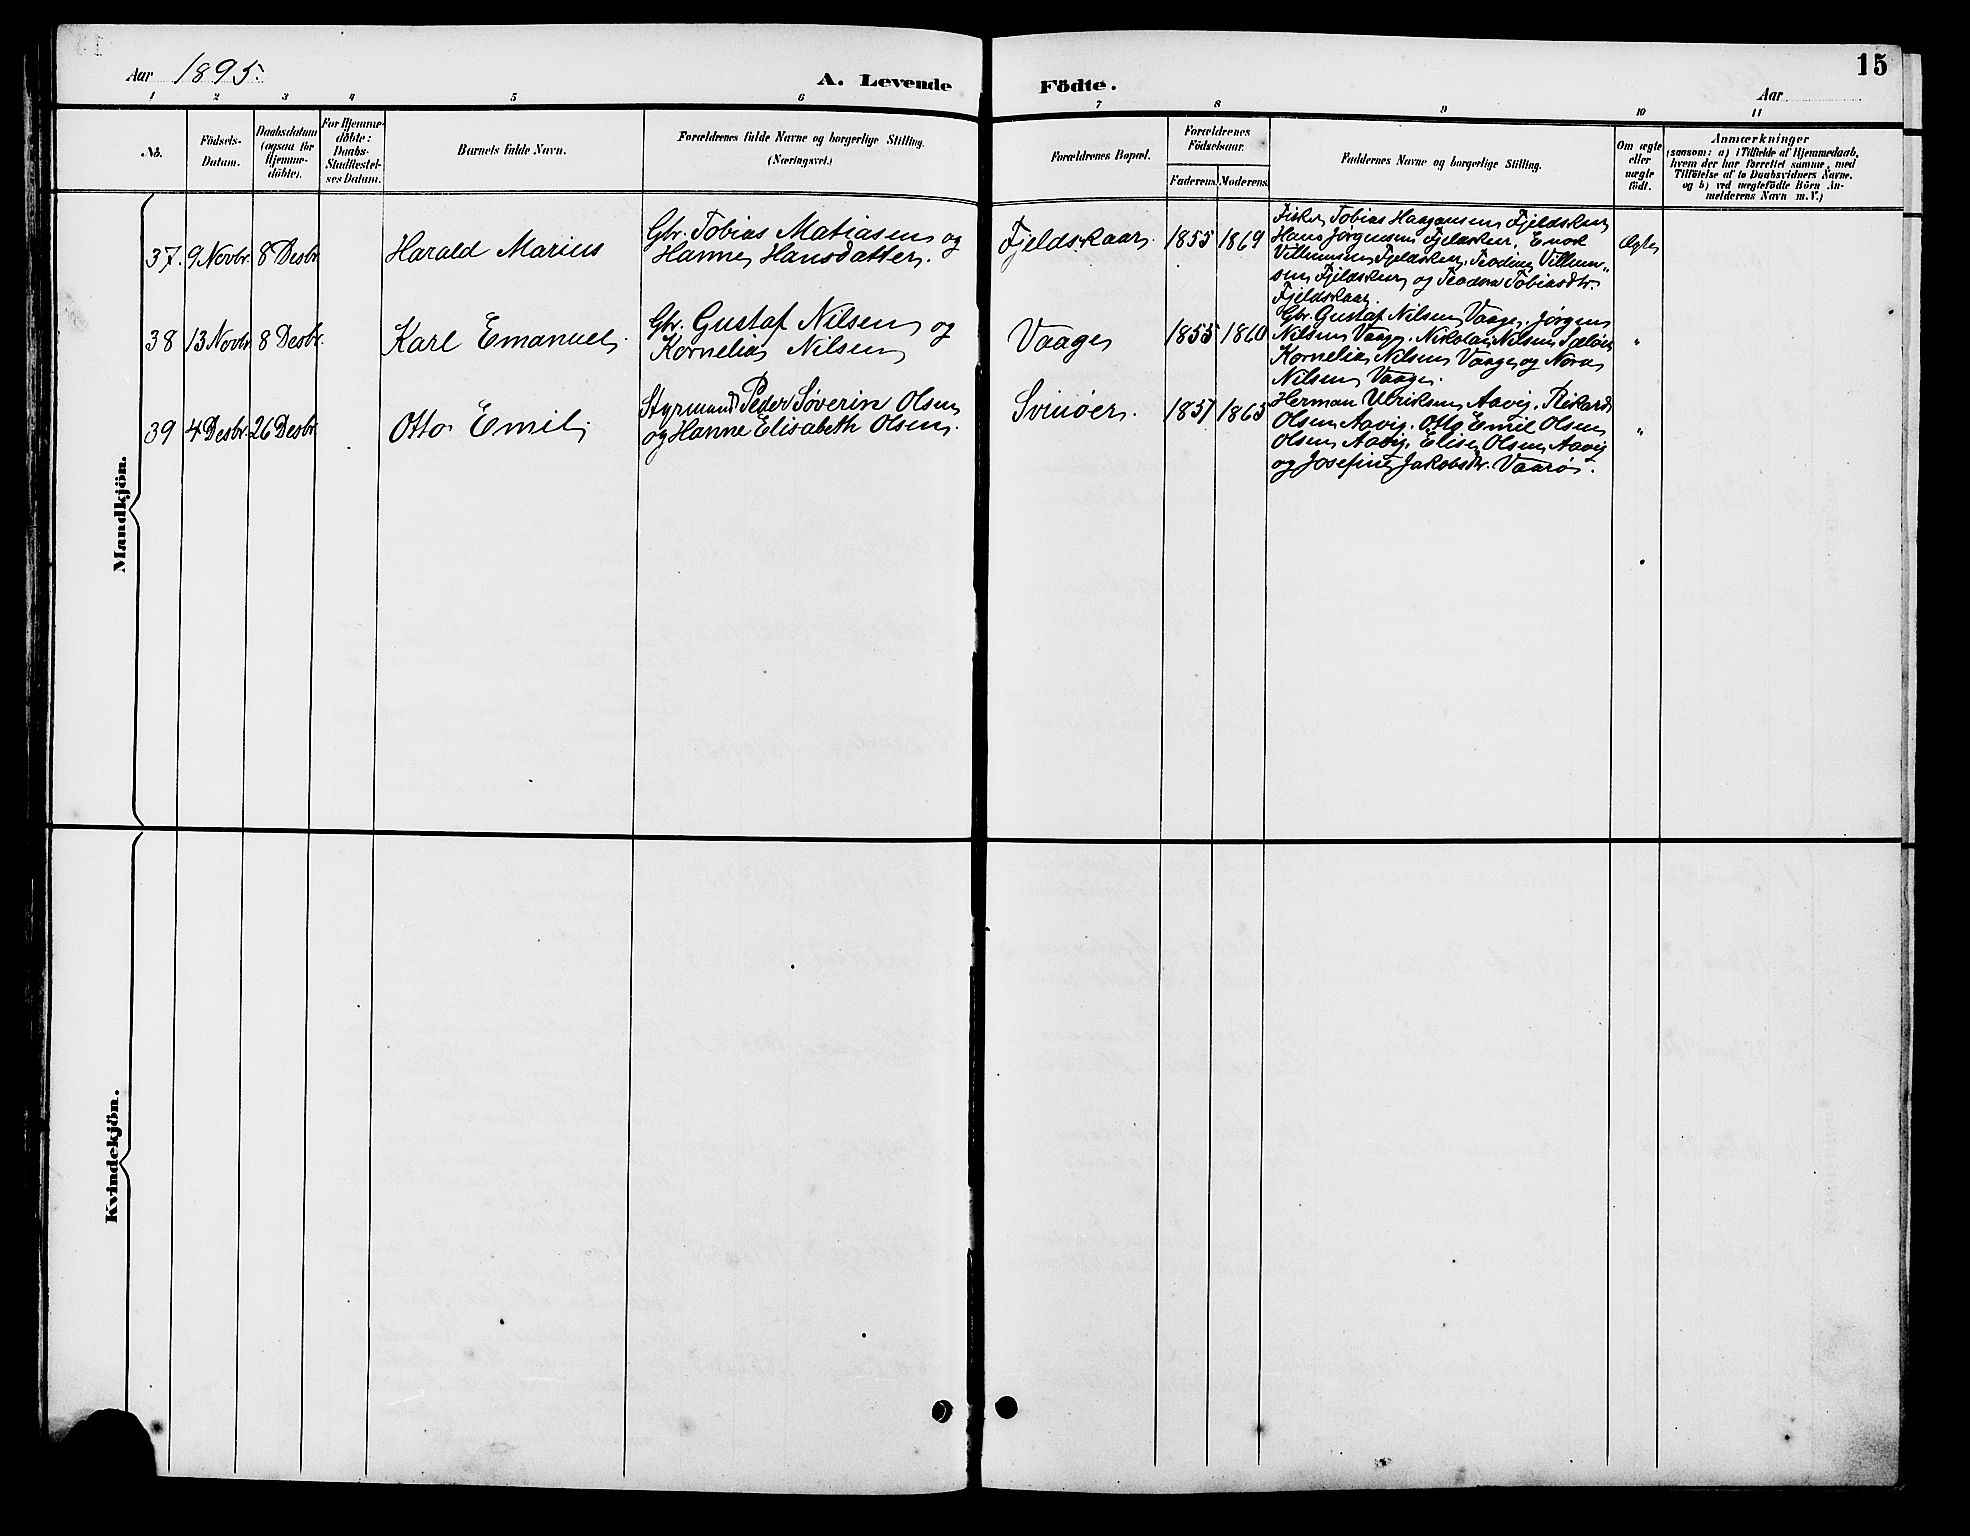 Aar 1895.
A. Levende
Födte.
15
Aar
1 2 3 4 5 6 7 8 9 10 11
No.
Födsels-
Datum.
Daabsdatum
(ogsaa for
Hjemme-
döbte).
For Hjemme-
döbte:
Daabs-
Stadfæstel-
ses Datum.
Barnets fulde Navn.
Forældrenes fulde Navne og borgerlige Stilling.
(Næringsvei.)
Forældrenes Bopæl.
Forældrenes
Födselsaar.
Faderens. Moderens.
Faddernes Navne og borgerlige Stilling.
Om ægte
eller
uægte
født.
Anmærkninger
(saasom: a) i Tilfælde af Hjemmedaab,
hvem der har forrettet samme, med
Tilföielse af to Daabsvidners Navne,
og b) ved uægtefödte Börn An-
melderens Navn m.V.)
Mandkjön.
37. 9 Novbr. 8 Desbr. Harald Marius
Gbr. Tobias Matiasen og
Hanne Hansdatter.
Fjeldskaar. 1855 1869
Fisker Tobias Haagensen Fjeldskar
Hans Jørgensen Fjeldskar. Enok
Villumsen Fjeldskar, Teodine Villum-
sen Fjeldskar og Teodora Tobiasdtr.
Fjeldskaar.
Ægte
38 13 Novbr. 8 Desbr. Karl Emanuel.
Gbr. Gustaf Nilsen og
Kornelia Nilsen
Vaage 1855 1860
Gbr. Gustaf Nilsen Vaage. Jørgen
Nilsen Vaage. Nikolai Nilsen
Kornelia Nilsen Vaage og Nora
Nilsen Vaage.
"
39 4 Desbr. 26 Desbr. Otto Emil
Styrmand Peder Søverin Olsen
og Hanne Elisabeth Olsen.
Svinøer. 1857 1865
Herman Ulriksen Aavig. Rikard
Olsen Aavig. Otto Emil Olsen
Olsen Aavig. Elise Olsen Aavig
og Josefine Jakobsdtr. Vaarø.
"
Kvindekjön.